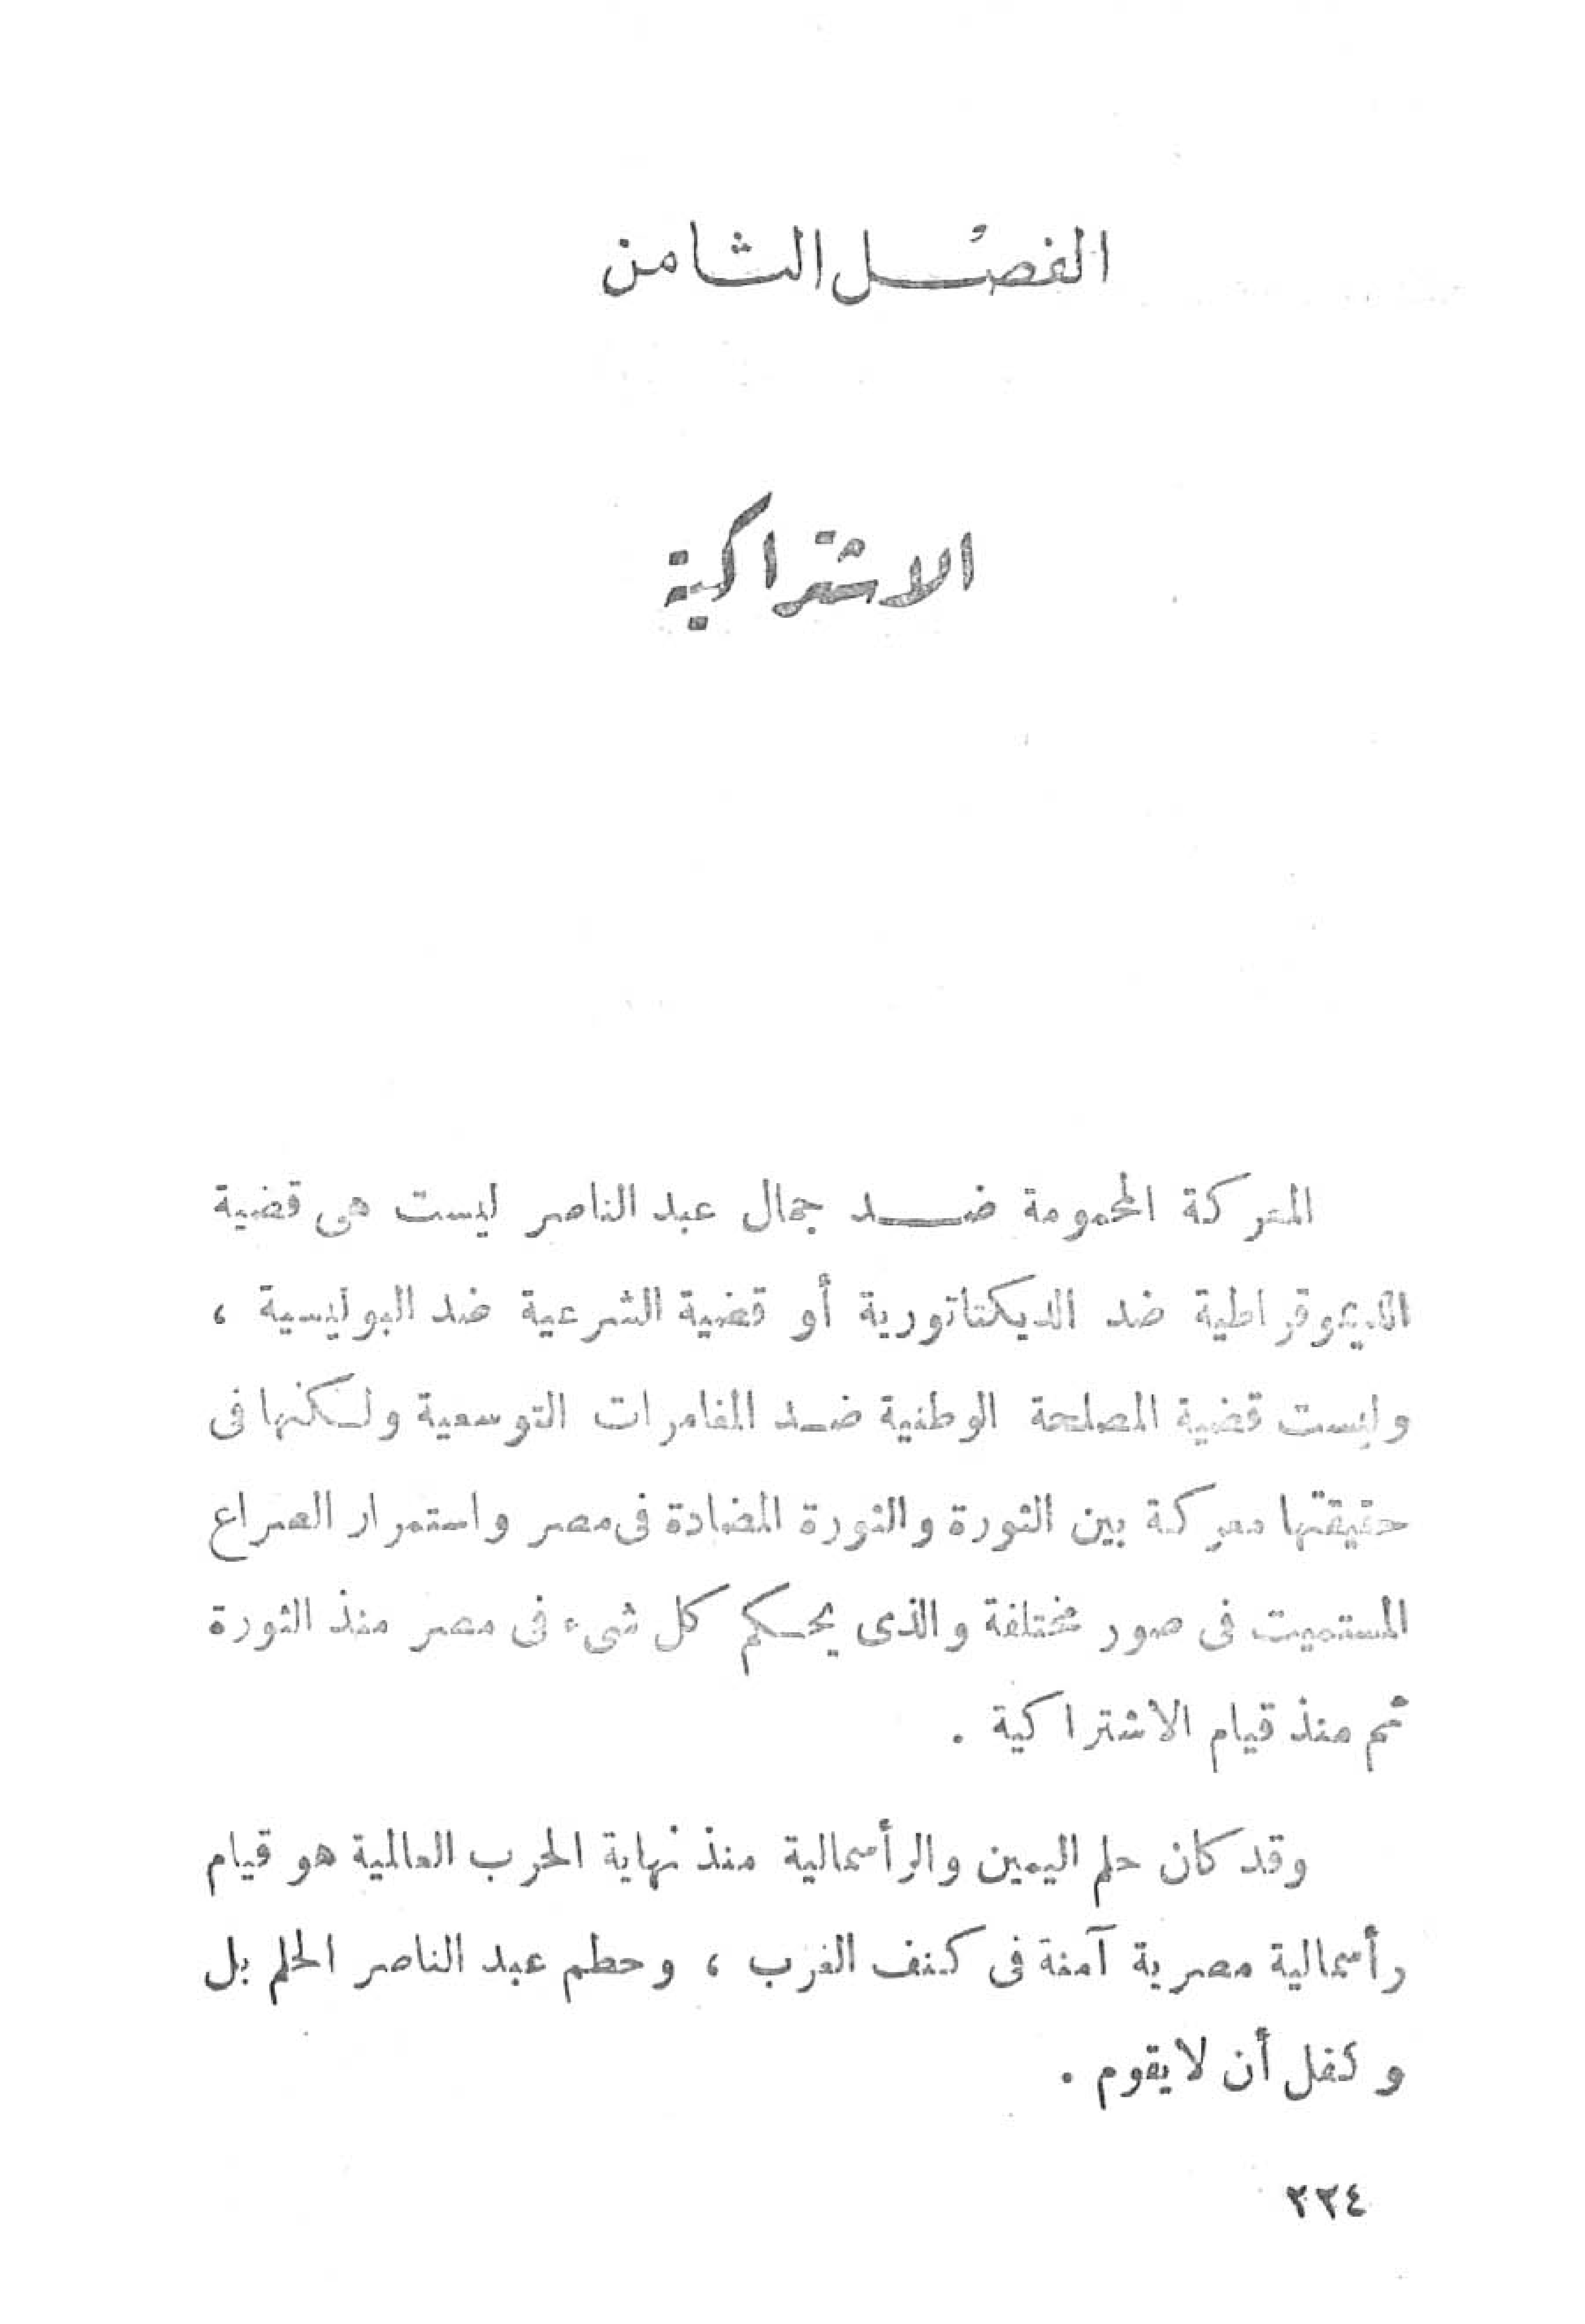 الفصل الثامن
الاشتراكية
المعركة المحمومة ضد جمال عبد الناصر ليست هى قضية
الديموقراطية ضد الديكتاتورية أو قضية الشرعية ضد البوليسية ،
وليست قضية المصلحة الوطنية ضد المغامرات التوسعية ولكنها فى
حقيقتها معركة بين الثورة والثورة المضادة فى مصر واستمرار الصراع
المستميت فى صور مختلفة والذى يحكم كل شىء فى مصر منذ الثورة
ثم منذ قيام الاشتراكية .
وقد كان حلم اليمين والرأسمالية منذ نهاية الحرب العالمية هو قيام
رأسمالية مصرية آمنة فى كنف الغرب ، وحطم عبد الناصر الحلم بل
وكفل أن لا يقوم .